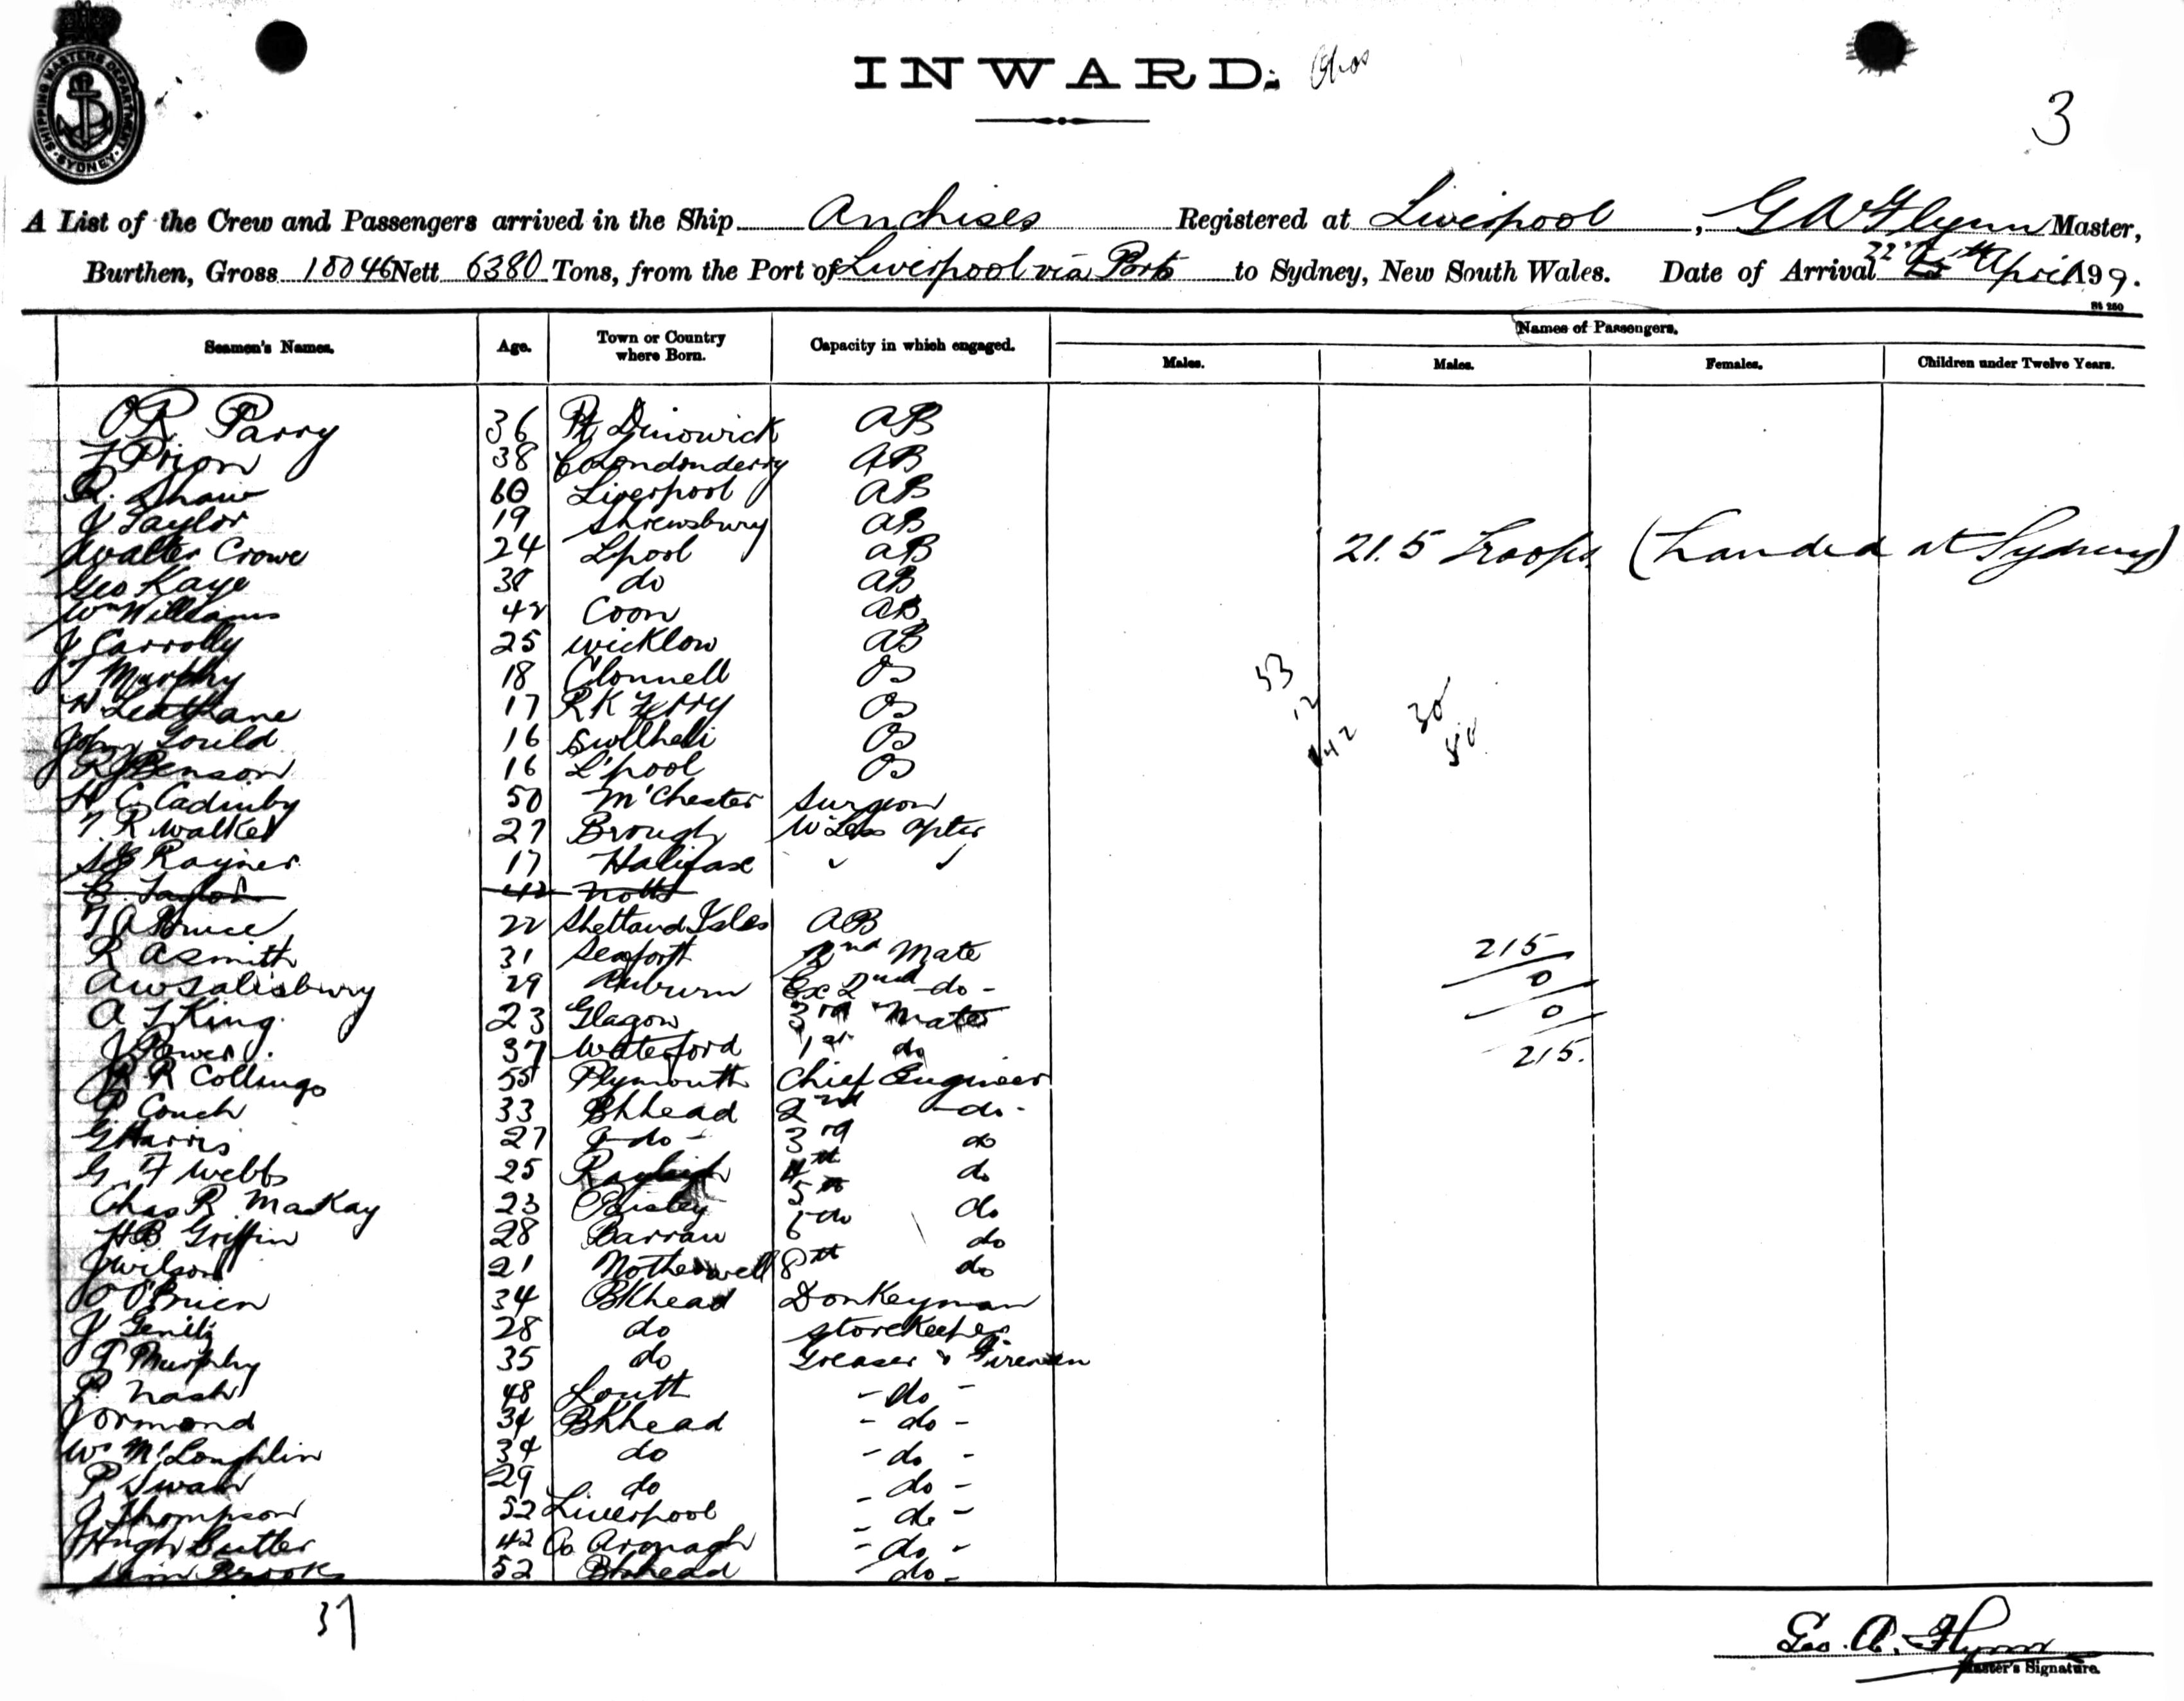 SHIPPING MASTERS DEPARTMENT
SYDNEY
INWARD.
3
A List of the Crew and Passengers arrived in the Ship Anchises Registered at Liverpool, G A Flynn Master,
Burthen, Gross 10046 Nett 6380 Tons, from the Port of Liverpool via Ports to Sydney, New South Wales. Date of Arrival 22 April 199.
Names of Passengers.
Seamen's Names. Age. Town or Country where Born. Capacity in which engaged. Males. Males. Females. Children under Twelve Years.
O R Parry 36 Pt Dinowick AB
38 Co Londonderry AB
R. Shaw 60 Liverpool AB
J Taylor 19 Shrewsbury AB
Walter Crowe 24 Lpool AB 215 Troops (Landed at Sydney)
Geo Kaye 38 do AB
Wm Williams 42 Coon AB
J Carrolly 25 Wicklow AB
J Murphy 18 Clonnell OS
17 OS
John Gould 16 OS
R J Benson 16 L'pool OS
H C 50 M'Chester Surgeon
T. R Walker 27 Brough W'Less Opter
Rayner 17 Halifax
C. Taylor 42 Notts
T A Bruce 22 Shetland Isles AB
R A Smith 31 Seaforth 2nd Mate 215
A W Salisbury 29 Auburn Ex 2nd -do- 0
A T King 23 Glagow 3rd Mate 0
J Power 37 Waterford 1st do 215.
R R Collings 55 Plymouth Chief Engineer
P Couch 33 Bhhead 2nd -do-
G Harris 27 -do- 3rd do
G F Webbs 25 4th do
Chas R MacKay 23 Paisley 5th do
H B Griffin 28 Barrow 6th do
J Wilson 21 Motherwell 8th do
O'Brien 34 BKhead Donkeyman
J 28 do Storekeeper
T Murphy 35 do Greaser & Fireman
P. Nash 48 Louth -do-
J Ormond 34 BKhead -do-
W McLoughlin 34 do -do-
P Swan 29 do -do-
J Thompson 52 Liverpool -do-
Hugh Butler 42 Co Armagh -do-
Sam Brooks 52 Bkhead -do-
37
Geo. A. Flynn
Master's Signature.